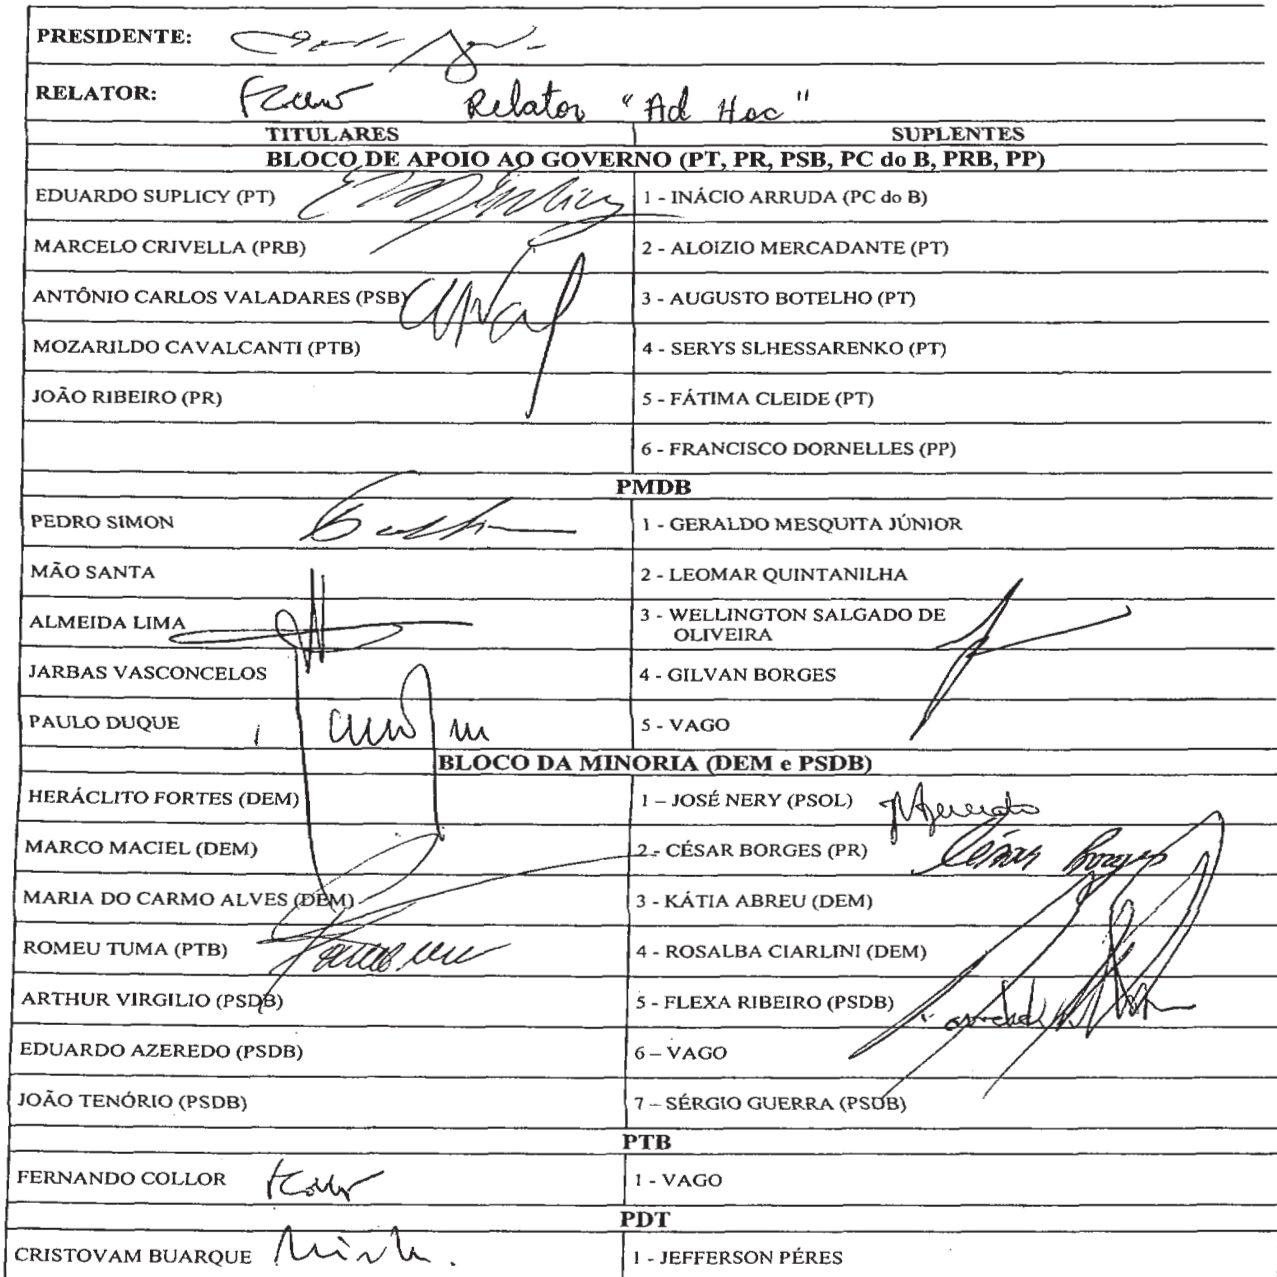 PRESIDENTE:
RELATOR: Relator "Ad Hoc"
TITULARES SUPLENTES
BLOCO DE APOIO AO GOVERNO (PT, PR, PSB, PC do B, PRB, PP)
EDUARDO SUPLICY (PT) 1 - INÁCIO ARRUDA (PC do B)
MARCELO CRIVELLA (PRB) 2 - ALOIZIO MERCADANTE (PT)
ANTÔNIO CARLOS VALADARES (PSB) 3 - AUGUSTO BOTELHO (PT)
MOZARILDO CAVALCANTI (PTB) 4 - SERYS SLHESSARENKO (PT)
JOÃO RIBEIRO (PR) 5 - FÁTIMA CLEIDE (PT)
6 - FRANCISCO DORNELLES (PP)
PMDB
PEDRO SIMON 1 - GERALDO MESQUITA JÚNIOR
MÃO SANTA 2 - LEOMAR QUINTANILHA
ALMEIDA LIMA 3 - WELLINGTON SALGADO DE
OLIVEIRA
JARBAS VASCONCELOS 4 - GILVAN BORGES
PAULO DUQUE 5 - VAGO
BLOCO DA MINORIA (DEM e PSDB)
HERÁCLITO FORTES (DEM) 1 – JOSÉ NERY (PSOL)
MARCO MACIEL (DEM) 2 - CÉSAR BORGES (PR) César Borges
MARIA DO CARMO ALVES (DEM) 3 - KÁTIA ABREU (DEM)
ROMEU TUMA (PTB) 4 - ROSALBA CIARLINI (DEM)
ARTHUR VIRGILIO (PSDB) 5 - FLEXA RIBEIRO (PSDB)
EDUARDO AZEREDO (PSDB) 6 – VAGO
JOÃO TENÓRIO (PSDB) 7 – SÉRGIO GUERRA (PSDB)
PTB
FERNANDO COLLOR 1 - VAGO
PDT
CRISTOVAM BUARQUE 1 - JEFFERSON PÉRES